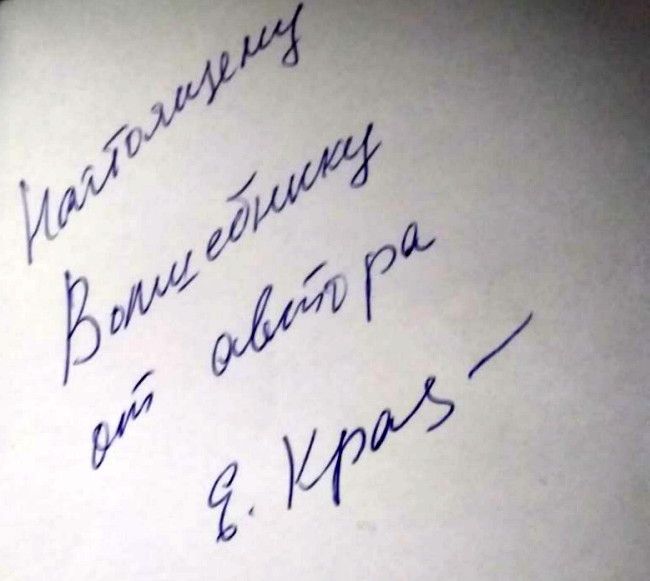 Настоящему
Волшебнику
от автора
Е. Краз